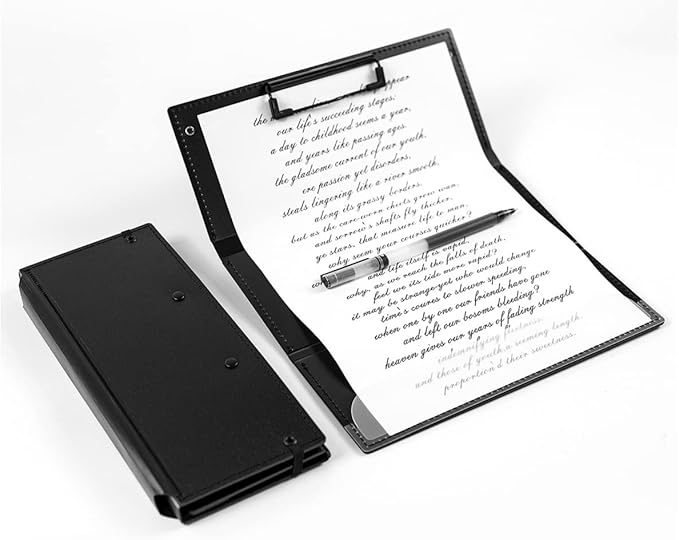 the appear
our life's succeeding stages;
a day to childhood seems a year,
and years like passing ages.
the gladsome current of our youth,
ere passion yet disorders,
steals lingering like a river smooth,
along its grassy borders.
but as the care-worn cheeks grow wan,
and sorrow's shafts fly thicker,
ye stars, that measure life to man,
why seem your courses quicker?
and life itself is vapid,
why, as we reach the falls of death,
feel we its tide more rapid?
it may be strange-yet who would change
time's coures to slower speeding,
when one by one our friends have gone
and left our bosoms bleeding?
heaven gives our years of fading strength
indemnifying fleetness;
and those of youth, a seeming length,
proportion'd their sweetness.